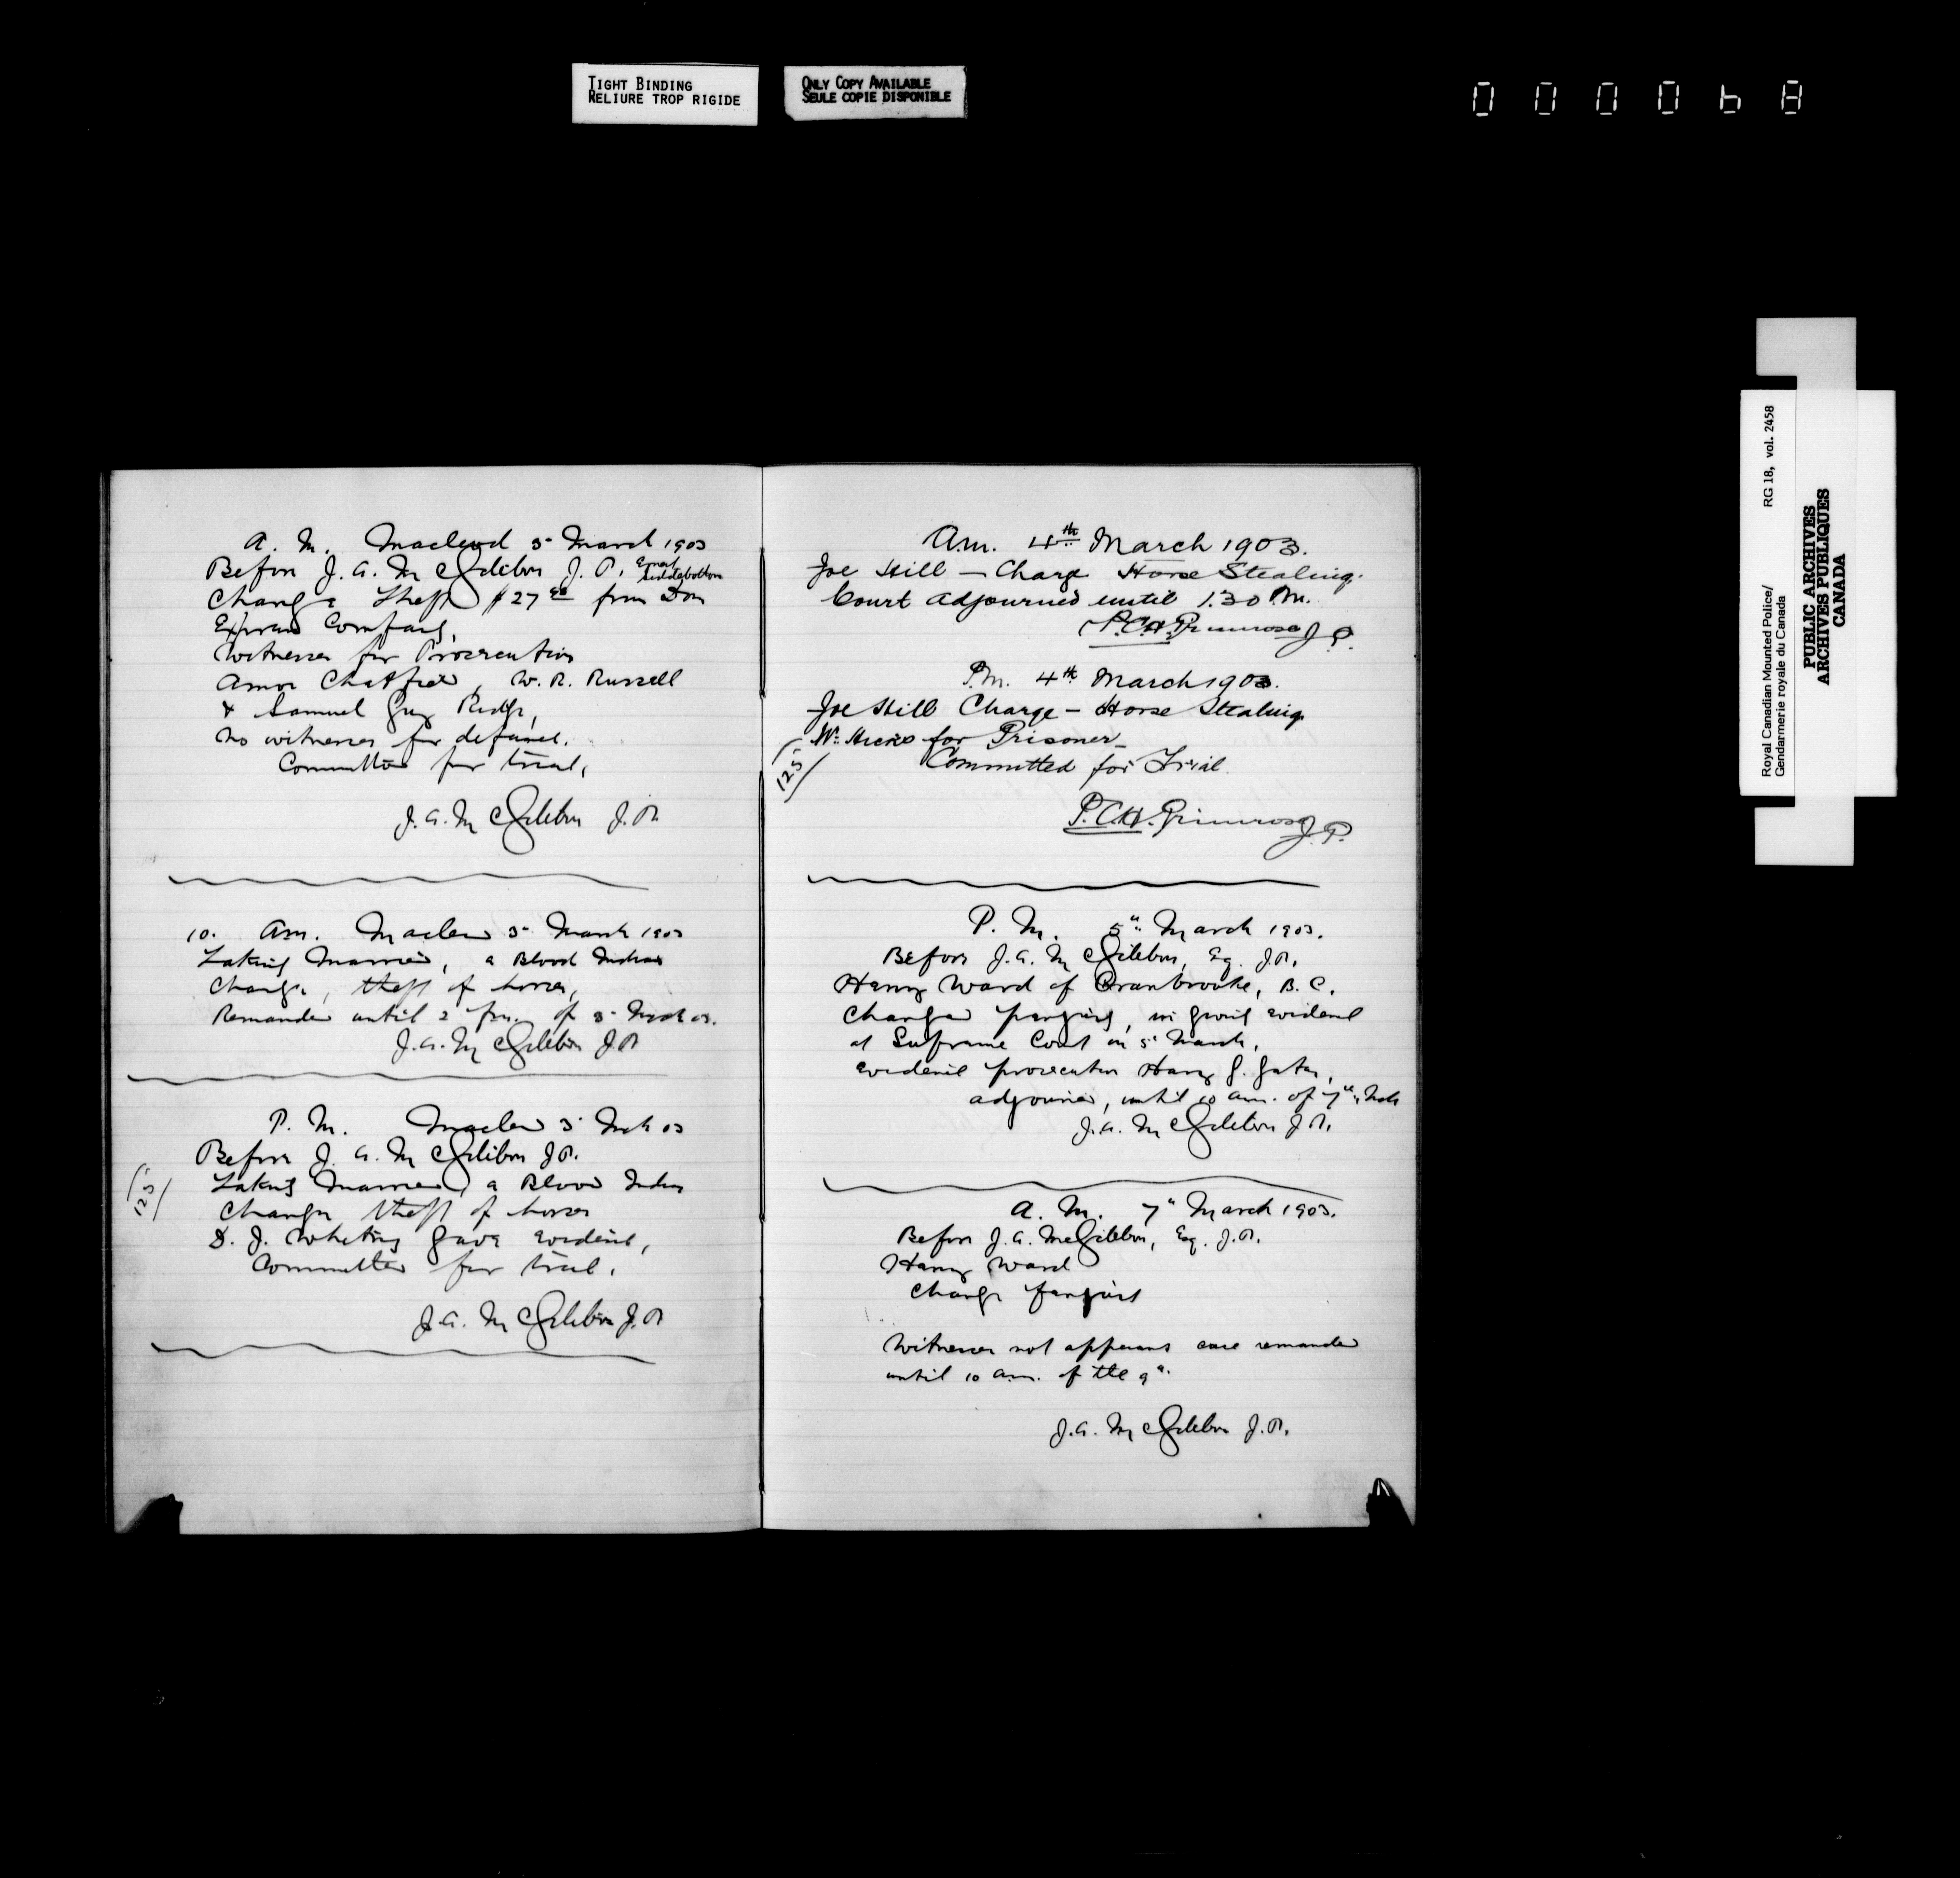 TIGHT BINDING
RELIURE TROP RIGIDE
ONLY COPY AVAILABLE
SEULE COPIE DISPONIBLE
0 0 0 0 6 8
Royal Canadian Mounted Police/ RG 18, vol. 2458
Gendarmerie royale du Canada
PUBLIC ARCHIVES
ARCHIVES PUBLIQUES
CANADA
A. M. Macleod 3 March 1903
Before J. A. McGibbon J. P.
Charge Theft $27 from Dom
Express Company,
Witnesses for Prosecution
Amos Chatfield, W. R. Russell
& Samuel Guy
no witnesses for defence.
Committed for trial,
J. A. McGibbon J. P.
10. Am. Macleod 3 March 1903
a Blood Indian
Charge, theft of horses,
Remanded until 2 p.m. of 3 March 03.
J. A. McGibbon J. P.
P. M. Macleod 3 Mch 03
Before J. A. McGibbon J P.
a Blood Indian
125
Charge theft of horses
D. J. Whitney gave evidence,
Committed for trial.
J. A. McGibbon J. P.
Am. 4th March 1903.
Joe Hill — Charge Horse Stealing.
Court adjourned until 1.30 P.M.
P.C.H. Primrose J P.
P.M. 4th March 1903.
Joe Hill Charge — Horse Stealing
for Prisoner
125
Committed for Trial.
P.C.H. Primrose J. P.
P. M. 5" March 1903.
Before J. A. McGibbon, Esq. J. P.
Harry Ward of Cranbrooke, B. C.
Charged perjury, in giving evidence
at Supreme Court on 5 March,
evidence prosecution Harry G.
adjourned, until 10 am. of 7" Mch
J. A. McGibbon J P.
A. M. 7" March 1903.
Before J. A. McGibbon, Esq. J. P.
Harry Ward
Charge perjury
Witnesses not appearing case remanded
until 10 a.m. of the 9".
J. A. McGibbon J. P.